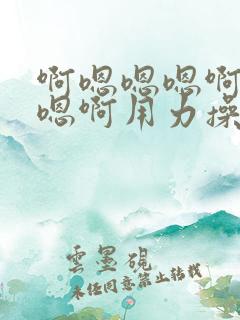 啊嗯嗯嗯啊
嗯啊用力操
雲墨硯
未经同意禁止转载